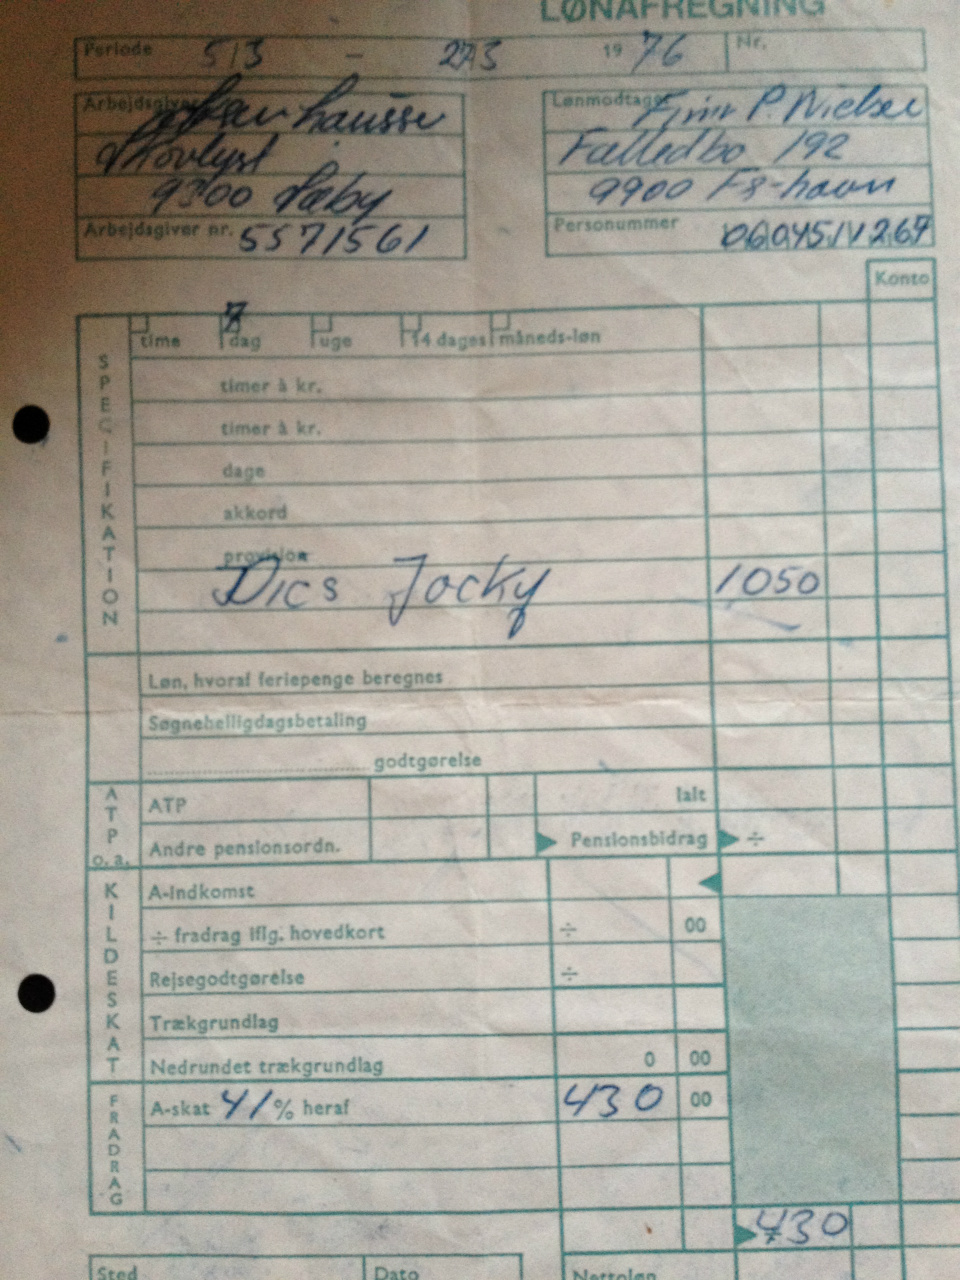 LØNAFREGNING
Periode 5/3 - 27/3 1976 Nr.
Arbejdsgiver
Lønmodtager Finn P. Nielsen
Hovlyst
Fælledbo 192
9300 Sæby
9900 Fs-havn
Arbejdsgiver nr. 5571561
Personummer 060451/1267
Konto
SPECIFIKATION
time dag uge 14 dages måneds-løn
timer à kr.
timer à kr.
dage
akkord
provision
Dics Jocky 1050
Løn, hvoraf feriepenge beregnes
Søgnehelligdagsbetaling
godtgørelse
ATP o.a.
ATP Ialt
Andre pensionsordn. Pensionsbidrag ÷
KILDESKAT
A-indkomst
÷ fradrag iflg. hovedkort ÷ 00
Rejsegodtgørelse ÷
Trækgrundlag
Nedrundet trækgrundlag 0 00
FRADRAG
A-skat 41% heraf 430 00
430
Sted Dato Nettoløn